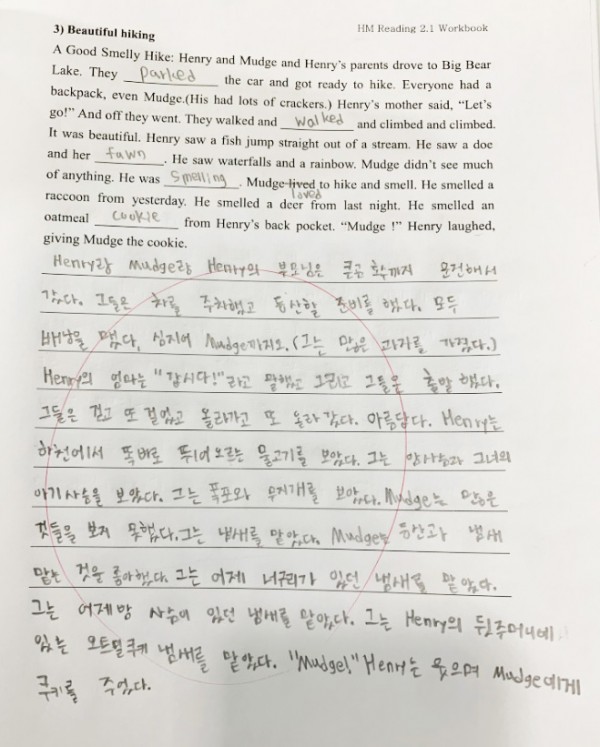 3) Beautiful hiking
HM Reading 2.1 Workbook
A Good Smelly Hike: Henry and Mudge and Henry's parents drove to Big Bear
Lake. They parked the car and got ready to hike. Everyone had a
backpack, even Mudge.(His had lots of crackers.) Henry's mother said, "Let's
go!" And off they went. They walked and walked and climbed and climbed.
It was beautiful. Henry saw a fish jump straight out of a stream. He saw a doe
and her fawn. He saw waterfalls and a rainbow. Mudge didn't see much
of anything. He was smelling. Mudge lived to hike and smell. He smelled a
loved
raccoon from yesterday. He smelled a deer from last night. He smelled an
oatmeal cookie from Henry's back pocket. "Mudge !" Henry laughed,
giving Mudge the cookie.
Henry랑 Mudge랑 Henry의 부모님은 큰곰 호수까지 운전해서
갔다. 그들은 차를 주차했고 등산할 준비를 했다. 모두
배낭을 맸다, 심지어 Mudge까지도.(그는 많은 과자를 가졌다.)
Henry의 엄마는 "갑시다!"라고 말했고 그리고 그들은 출발했다.
그들은 걷고 또 걸었고 올라가고 또 올라갔다. 아름답다. Henry는
하천에서 똑바로 뛰어오르는 물고기를 보았다. 그는 암사슴과 그녀의
아기사슴을 보았다. 그는 폭포와 무지개를 보았다. Mudge는 많은
것들을 보지 못했다. 그는 냄새를 맡았다. Mudge는 등산과 냄새
맡는 것을 좋아했다. 그는 어제 너구리가 있던 냄새를 맡았다.
그는 어제밤 사슴이 있던 냄새를 맡았다. 그는 Henry의 뒷주머니에
있는 오트밀쿠키 냄새를 맡았다. "Mudge!" Henry는 웃으며 Mudge에게
쿠키를 주었다.